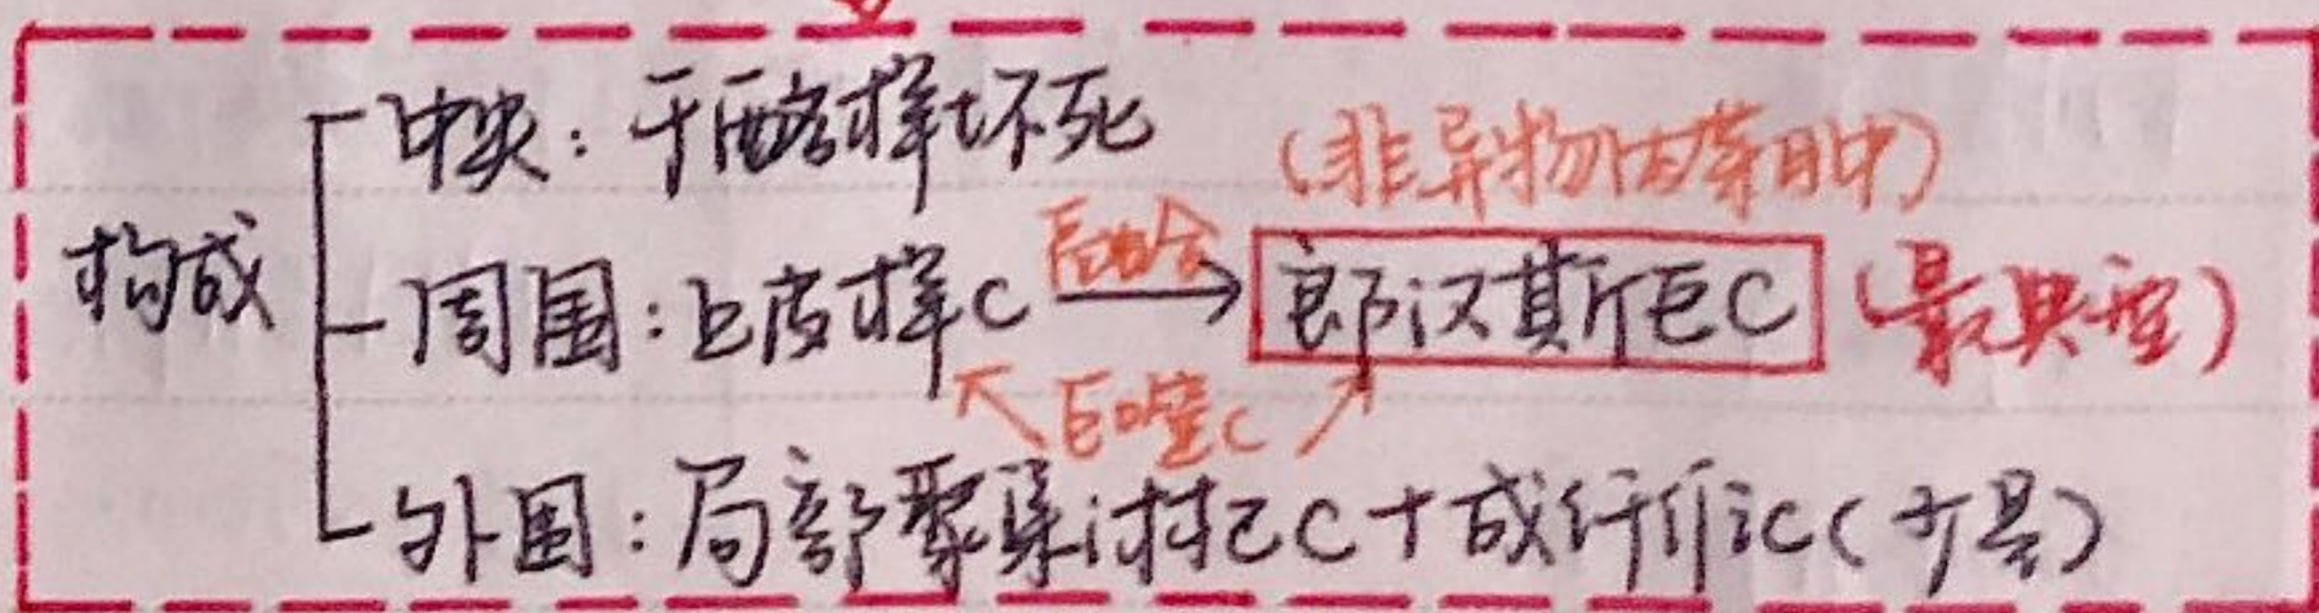 中央：干酪样坏死
(非异物肉芽肿)
构成
周围：上皮样C 融合→ 郎汉斯巨C (最典型)
↖巨噬C↗
外围：局部聚集淋巴C+成纤维C(少量)